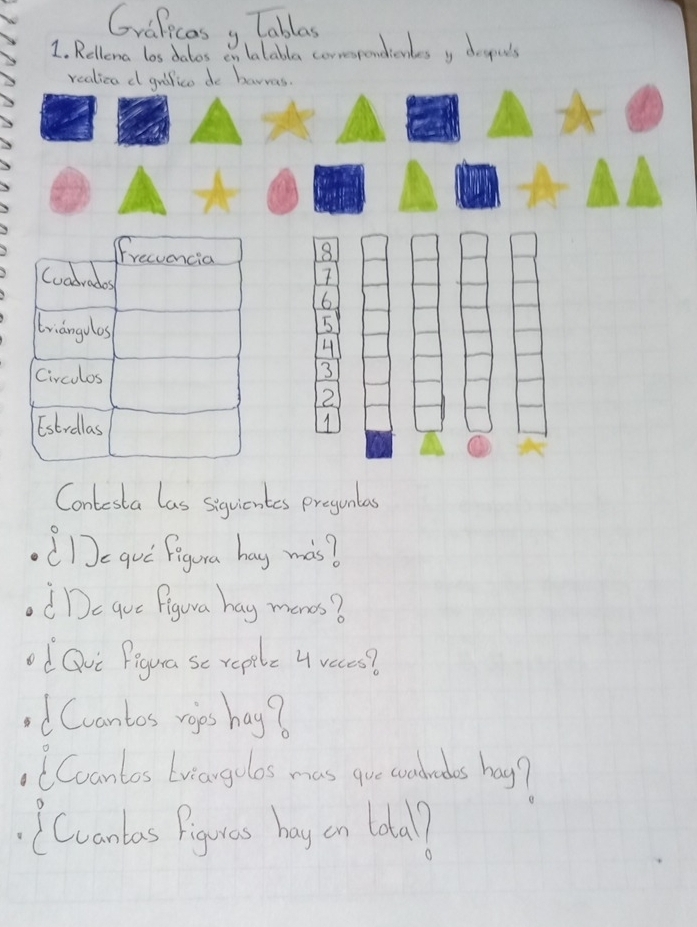 Gráficas y Tablas
1. Rellena los datos en la tabla correspondientes y después
realiza el gráfico de barras.
Frecuencia
Cuadrados
triángulos
Circulos
Estrellas
8
7
6
5
4
3
2
1
Contesta las siguientes preguntas
• ¿De qué figura hay más?
• ¿De que figura hay menos?
• ¿Qué figura se repite 4 veces?
• ¿Cuantos rojos hay?
• ¿Cuantos triangulos mas que cuadrados hay?
• ¿Cuantas figuras hay en total?